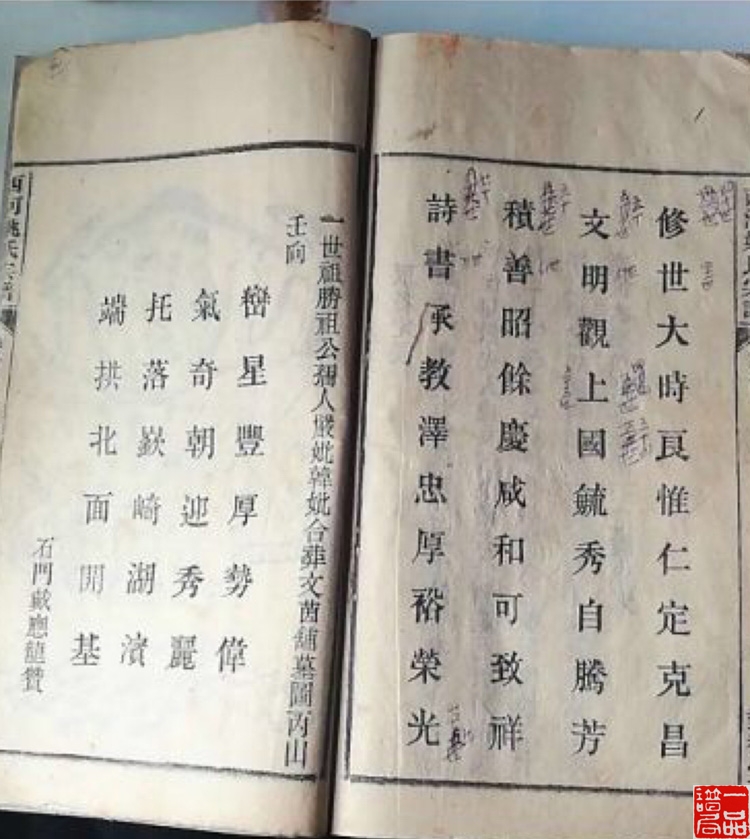 修世大時良惟仁定克昌
文明觀上國毓秀自騰芳
積善昭餘慶咸和可致祥
詩書承教澤忠厚裕榮光
一世祖勝祖公孺人嚴妣韓妣合葬文茵舖墓圖丙山
壬向
巒星豐厚勢偉
氣奇朝迎秀麗
托落嶔崎湖濱
端拱北面開基
石門戴應龍贊
一品譜局